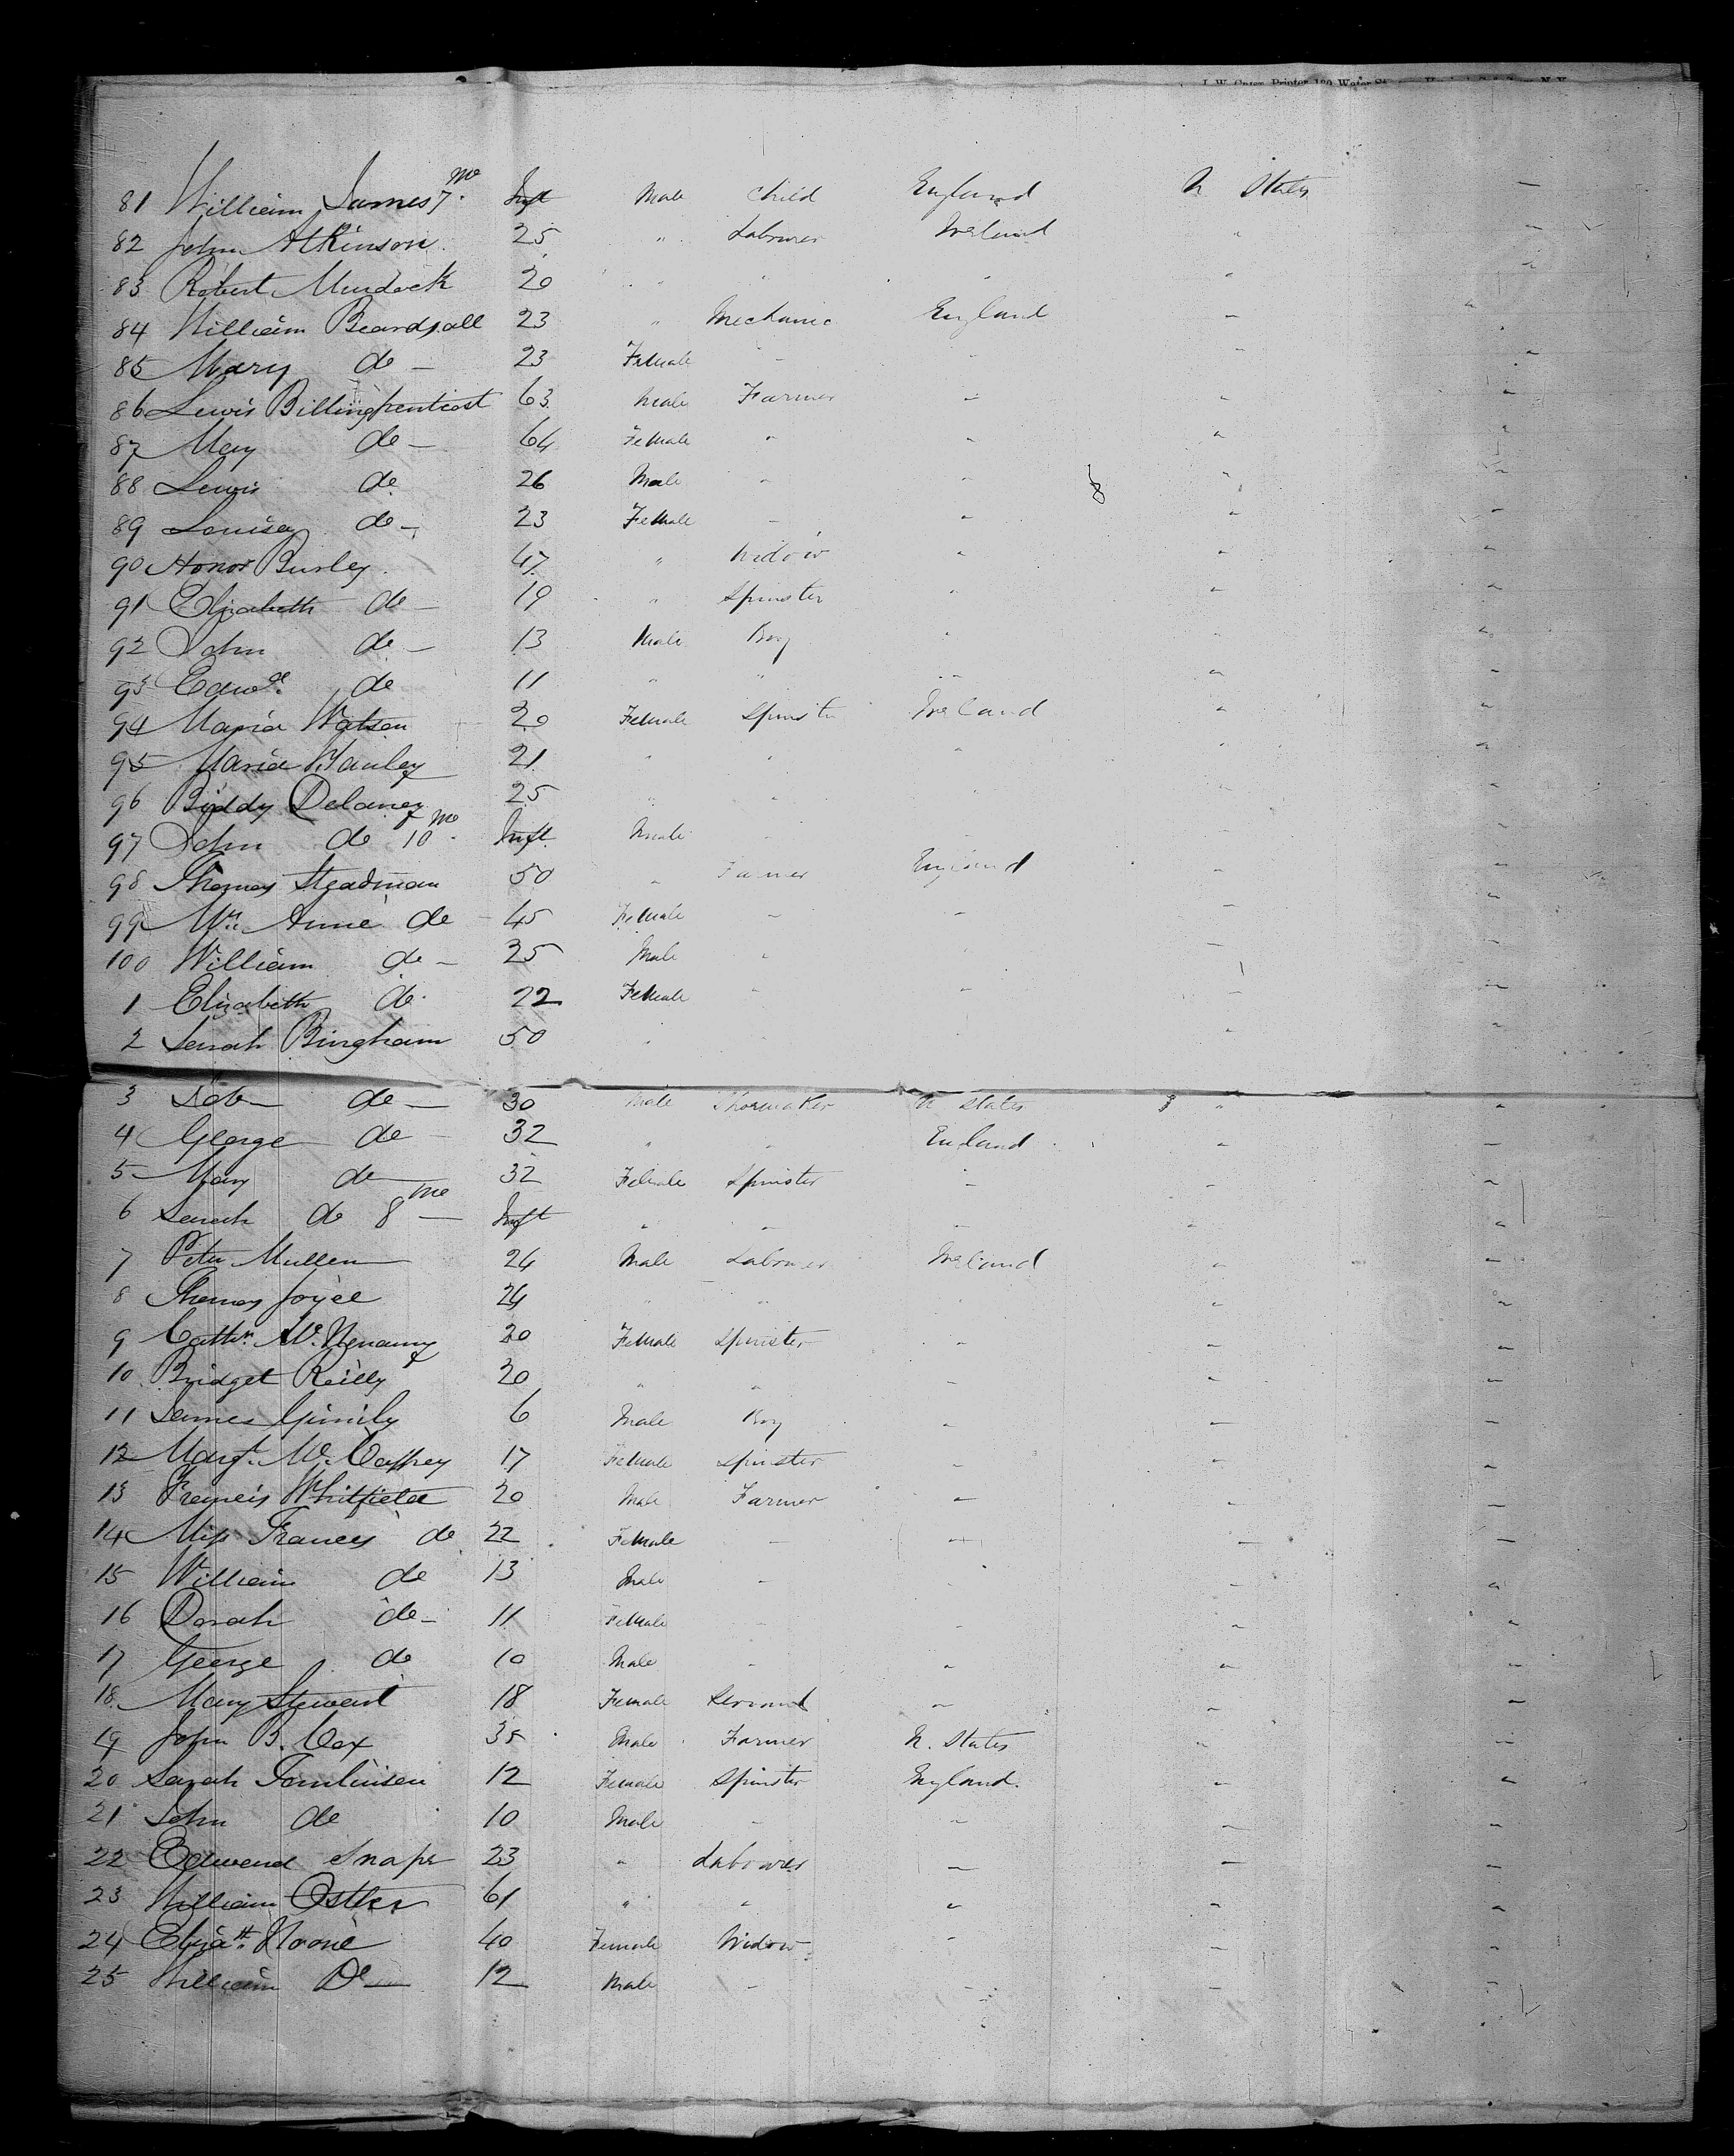 J. W. Printer, 180 Water St. N. Y.
81 William James 7 mo Inft Male Child England U States —
82 John Atkinson 25 " Labourer Ireland " "
83 Robert Murdock 20 " " " " "
84 William Beardsall 23 " Mechanic England " "
85 Mary do — 23 Female " " " "
86 Lewis Billing 63 Male Farmer " " "
87 Mary do — 64 Female " " " "
88 Lewis do 26 Male " " " "
89 Louisa do — 23 Female " " " "
90 Honor Burley 47 " Widow " " "
91 Elizabeth do — 19 " Spinster " " "
92 John do — 13 Male Boy " " "
93 Edwd. do 11 " " " " "
94 Maria Watson 20 Female Spinster Ireland " "
95 Maria Hanley 21 " " " " "
96 Biddy Delaney 25 " " " " "
97 John do 10 mo Inft Male " " " "
98 Thomas Steadman 50 " Farmer England " "
99 Anne do 45 Female " " " "
100 William do — 25 Male " " " "
1 Elizabeth do 22 Female " " " "
2 Sarah Bingham 50 " " " " "
3 do — 30 Male Shoemaker U States " "
4 George do — 32 " " England " "
5 Mary do — 32 Female Spinster " " "
6 Sarah do 8 mo — Inft " " " " "
7 Peter Mullen 24 Male Labourer Ireland " "
8 Thomas Joyce 24 " " " " "
9 Cathn. 20 Female Spinster " " "
10 Bridget Reilly 20 " " " " "
11 James 6 Male Boy " " "
12 Margt. McCaffrey 17 Female Spinster " " "
13 Francis Whitfield 20 Male Farmer " " "
14 Miss Frances do 22 Female " " " "
15 William do 13 Male " " " "
16 Dorah do — 11 Female " " " "
17 George do 10 Male " " " "
18 Mary Stewart 18 Female Servant " " "
19 John B. Cox 35 Male Farmer U. States " "
20 Sarah Tomlinson 12 Female Spinster England " "
21 John do 10 Male " " " "
22 Edmund Snape 23 " Labourer " " "
23 William Ostler 61 " " " " "
24 Elizath. Noone 40 Female Widow " " "
25 William Do — 12 Male " " " "